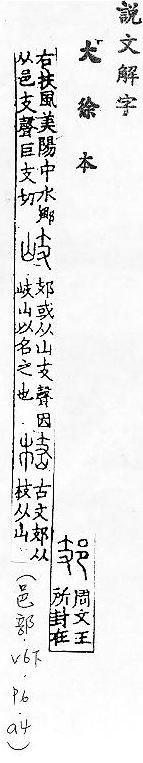 說文解字
大徐本
𨙸
周文王
所封在
右扶風美陽中水鄉
从邑支聲巨支切
岐
𨙸或从山支聲因
岐山以名之也
古文𨙸从
枝从山
(邑部·v6下·p6·a4)